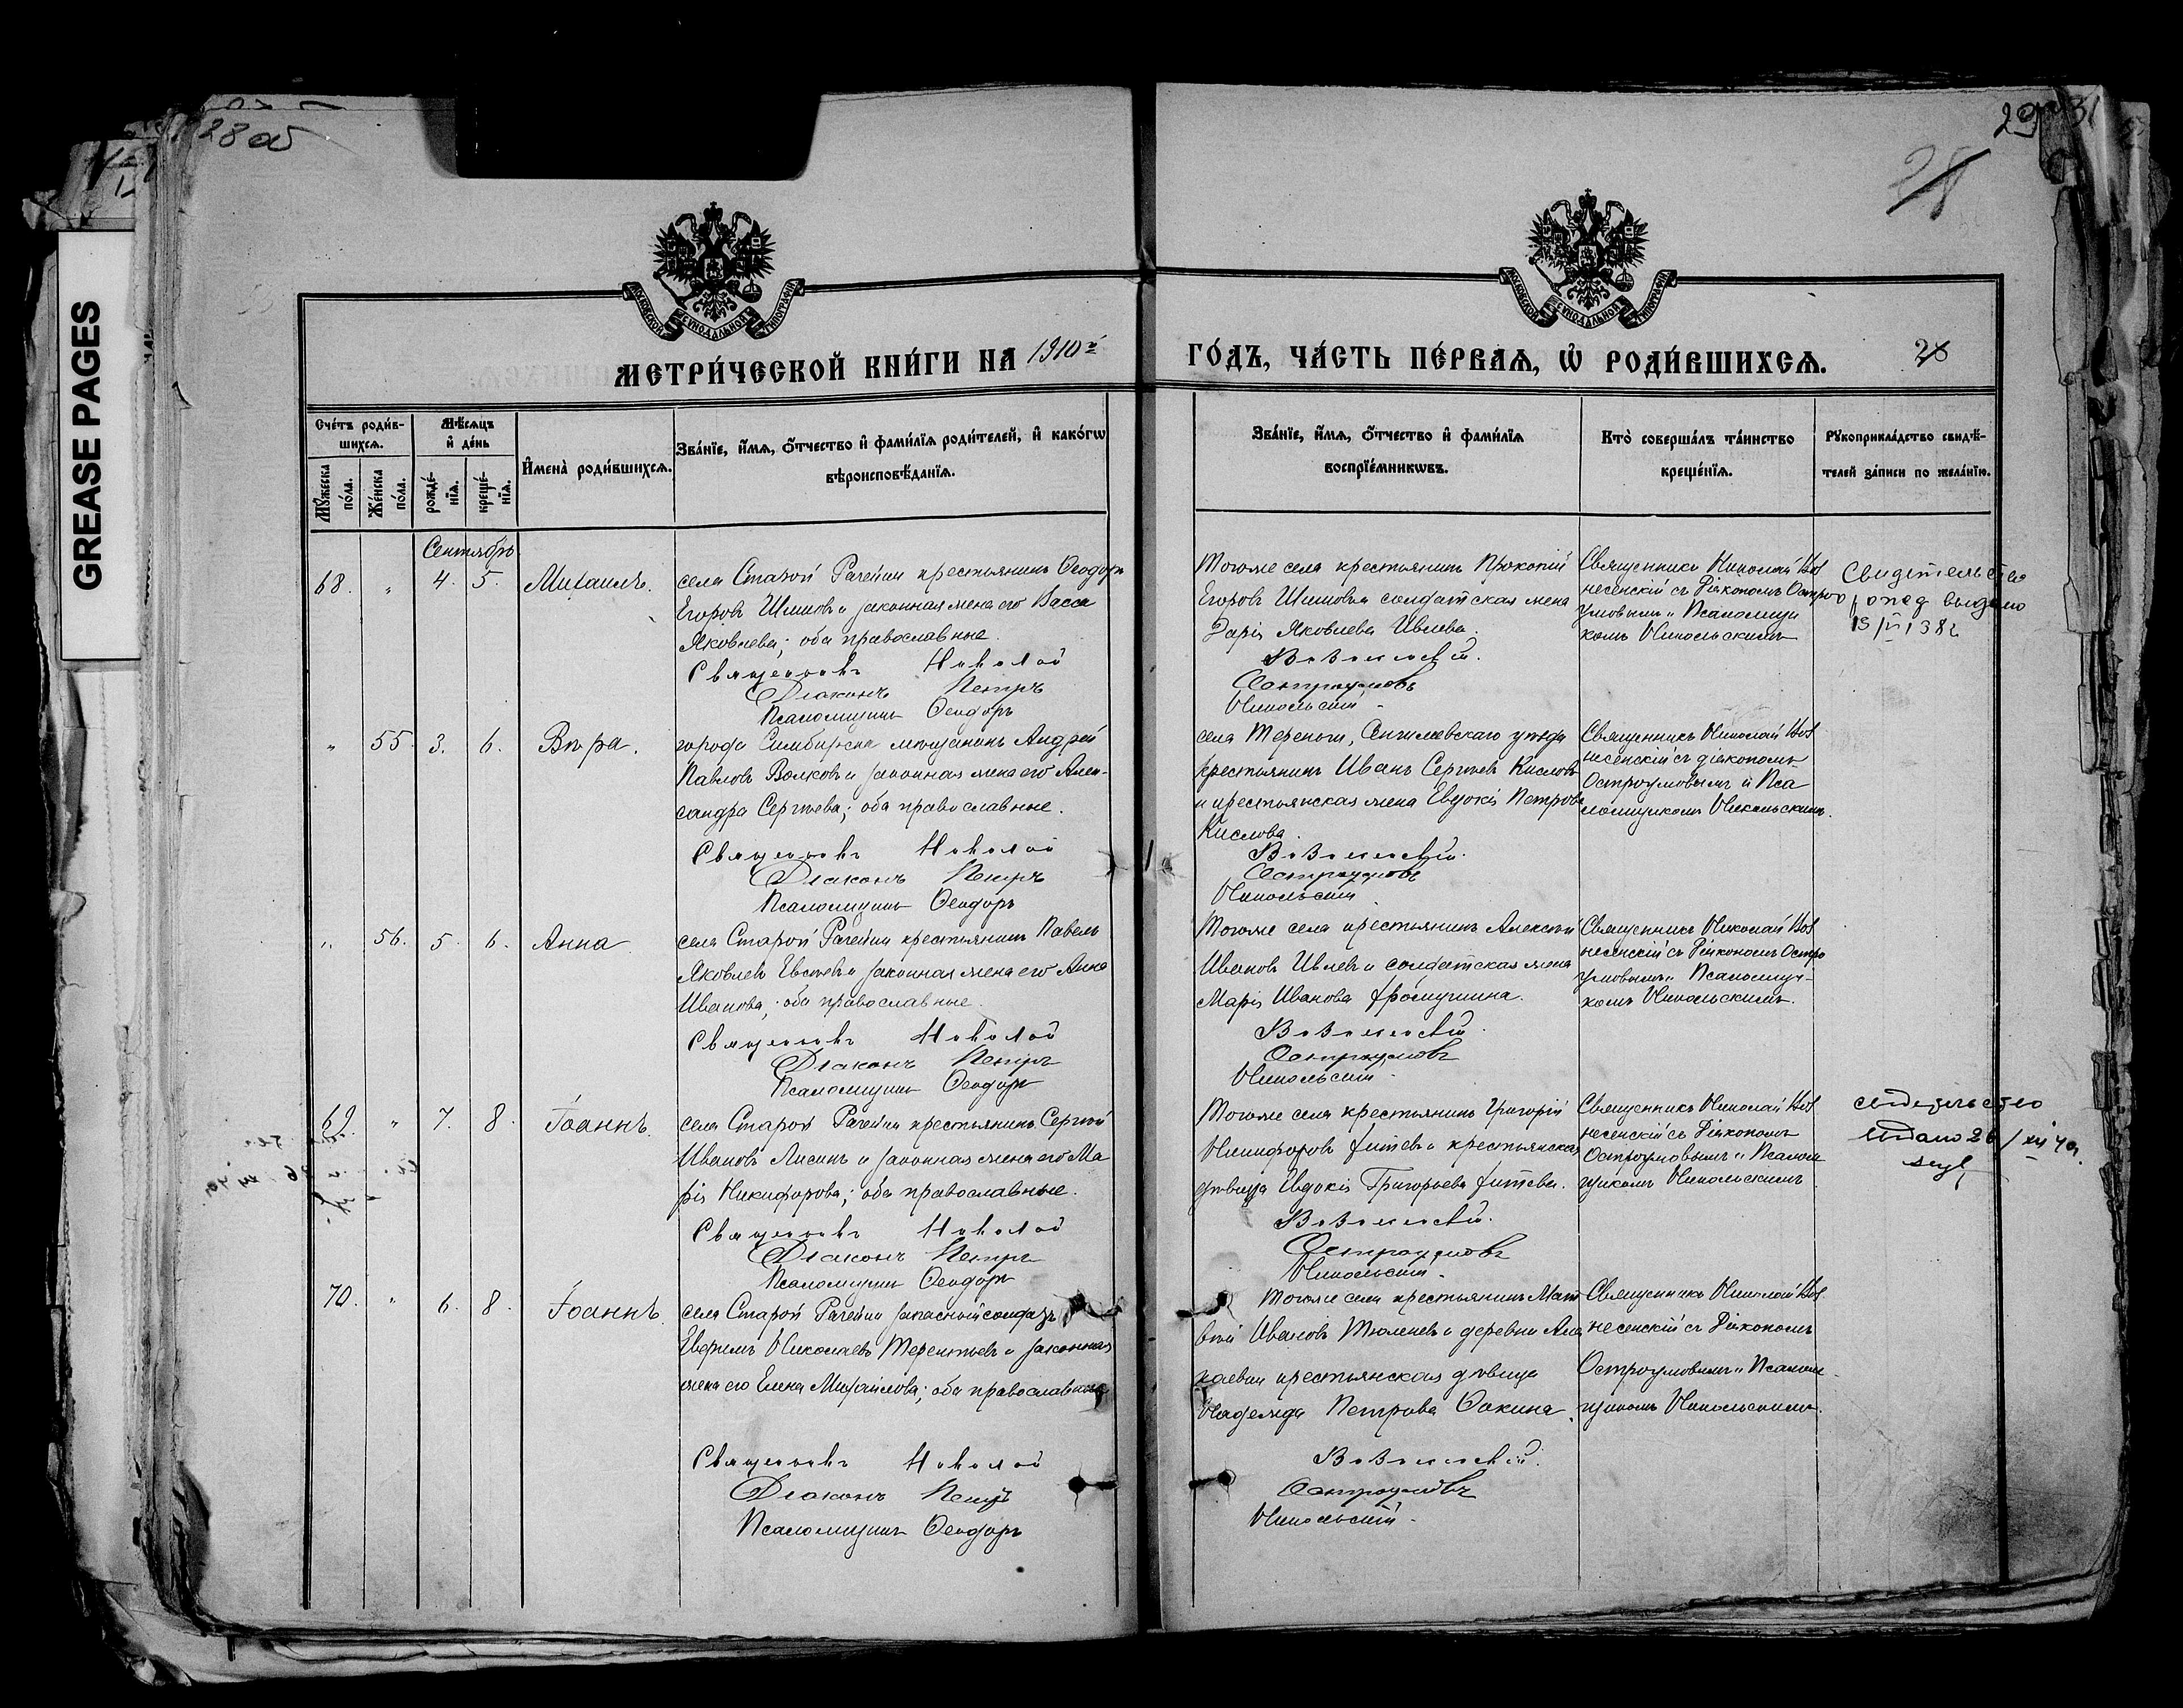 28 об
29
31
GREASE PAGES
МОСКОВСКОЙ СѴНОДАЛЬНОЙ ТИПОГРАФІИ
МОСКОВСКОЙ СѴНОДАЛЬНОЙ ТИПОГРАФІИ
МЕТРИ́ЧЕСКОЙ КНИ́ГИ НА 1910й
ГО́ДЪ, ЧА́СТЬ ПЕ́РВАѦ, Ѡ҆ РОДИ́ВШИХСѦ.
28
Сче́тъ роди́вшихсѧ.
Мꙋ́жеска по́ла.
Же́нска по́ла.
Мѣ́сѧцъ и҆ де́нь
рожде́нїѧ.
креще́нїѧ.
И҆мена̀ роди́вшихсѧ.
Зва́нїе, и҆́мѧ, ѻ҆́тчество и҆ фами́лїѧ роди́телей, и҆ како́гѡ
вѣроисповѣ́данїѧ.
Зва́нїе, и҆́мѧ, ѻ҆́тчество и҆ фами́лїѧ
воспрїе́мникѡвъ.
Кто̀ соверша́лъ та́инство
креще́нїѧ.
Рꙋкоприкла́дство свидѣ́-
телей за́писи по жела́нїю.
Сентябрь
68. " 4. 5. Михаилъ.
села Старой Рачейки крестьянинъ Ѳеодоръ
Егоровъ Шишовъ и законная жена его Васса
Яковлева; оба православные.
Священникъ Николай
Діаконъ Петръ
Псаломщикъ Ѳеодоръ
Тогоже села крестьянинъ Прокопій
Егоровъ Шишовъ и солдатская жена
Дарія Яковлева Ивлева.
Вознесенскій.
Остроумовъ
Никольскій
Священникъ Николай Воз
несенскій съ Діакономъ Остро
умовымъ и Псаломщи
комъ Никольскимъ
Свидетельство
выдано
" 55. 3. 6. Вѣра.
города Симбирска мѣщанинъ Андрей
Павловъ Волковъ и законная жена его Алек-
сандра Сергѣева; оба православные.
Священникъ Николай
Діаконъ Петръ
Псаломщикъ Ѳеодоръ
села Тереньги, Сенгилеевскаго уѣзда
крестьянинъ Иванъ Сергѣевъ Кисловъ
и крестьянская жена Евдокія Петрова
Кислова.
Вознесенскій.
Остроумовъ
Никольскій
Священникъ Николай Воз
несенскій съ діакономъ
Остроумовымъ и Пса
ломщикомъ Никольскимъ.
" 56. 5. 6. Анна
села Старой Рачейки крестьянинъ Павелъ
Яковлевъ Евстевъ и законная жена его Анна
Иванова; оба православные.
Священникъ Николай
Діаконъ Петръ
Псаломщикъ Ѳеодоръ
Тогоже села крестьянинъ Алексѣй
Ивановъ Ивлевъ и солдатская жена
Марія Иванова
Вознесенскій.
Остроумовъ
Никольскій
Священникъ Николай Воз
несенскій съ Діакономъ Остро
умовымъ и Псаломщи-
комъ Никольскимъ.
69. " 7. 8. Іоаннъ.
села Старой Рачейки крестьянинъ Сергѣй
Ивановъ Лисинъ и законная жена его Ма
рія Никифорова; оба православные.
Священникъ Николай
Діаконъ Петръ
Псаломщикъ Ѳеодоръ
Тогоже села крестьянинъ Григорій
Никифоровъ и крестьянская
дѣвица Евдокія Григорьева
Вознесенскій.
Остроумовъ
Никольскій.
Священникъ Николай Воз
несенскій съ Діакономъ
Остроумовымъ и Псалом
щикомъ Никольскимъ.
свидетельство
70. " 6. 8. Іоаннъ.
села Старой Рачейки запасный солдатъ
Евфимъ Николаевъ Терентьевъ и законная
жена его Елена Михайлова; оба православные
Священникъ Николай
Діаконъ Петръ
Псаломщикъ Ѳеодоръ
Тогоже села крестьянинъ Мат
вѣй Ивановъ Тюленевъ и деревни
крестьянская дѣвица
Надежда Петрова
Вознесенскій.
Остроумовъ
Никольскій.
Священникъ Николай Воз
несенскій съ Діакономъ
Остроумовымъ и Псалом
щикомъ Никольскимъ.